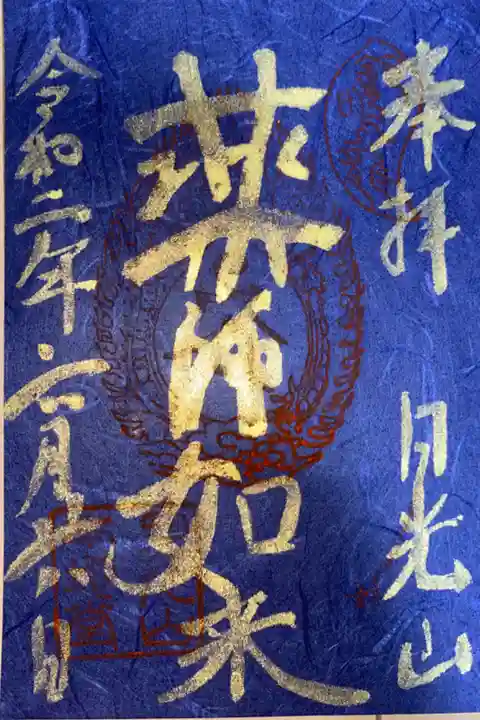 奉拝 日光山
薬師如来
令和二年六月廿六日